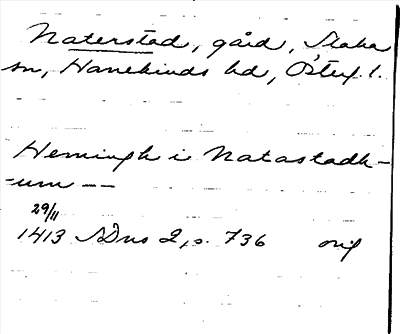 Naterstad, gård, Slaka
sn, Hanekinds hd, Östergl.
Hemingh i Natastadh-
-um --
29/11
1413 SDns 2, s. 736 orig